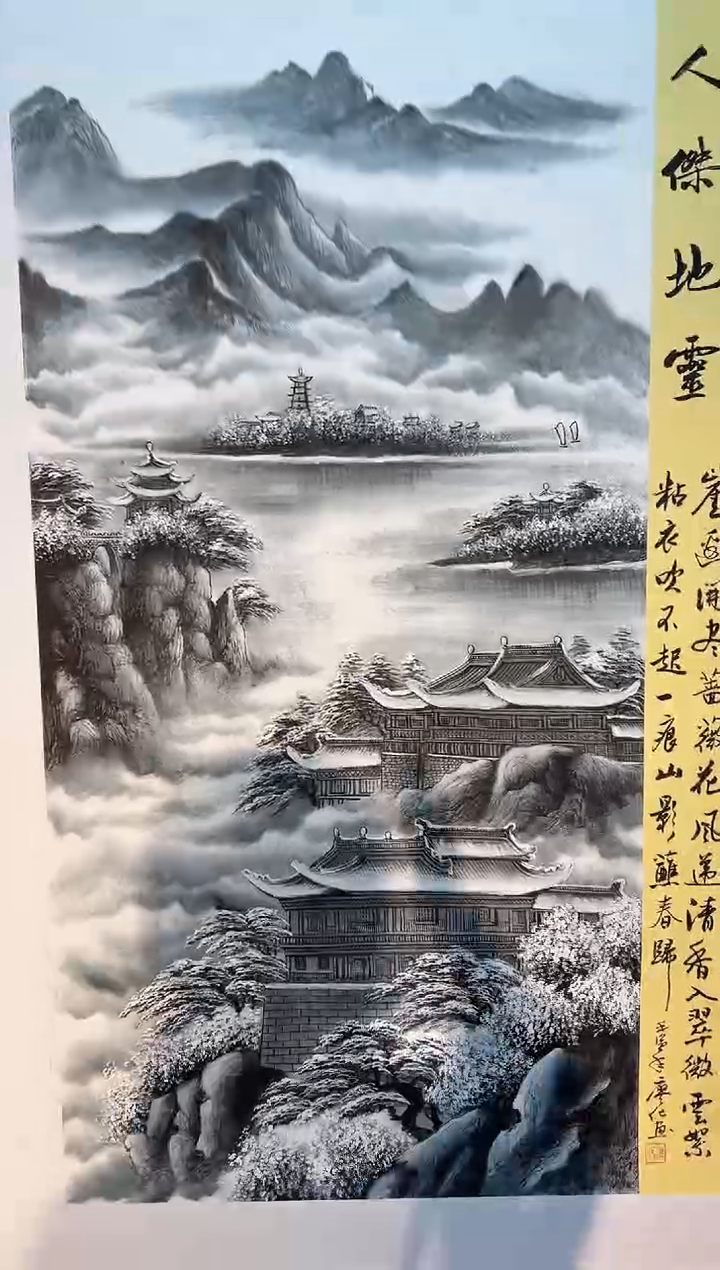 人傑地靈
崖邊開尽薔薇花風遞清香入翠微雲絮
粘衣吹不起一痕山影蘸春歸